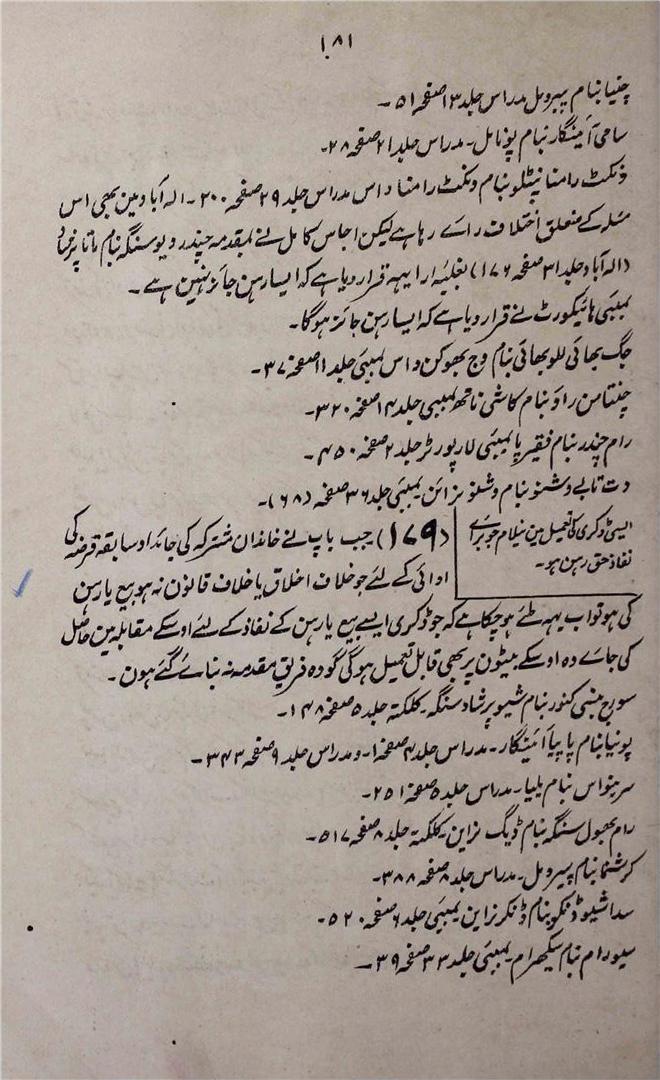 ۱۸۱
چنیا بنام پیرومل مدراس جلد ۱۳ صفحہ ۵۱ ۔
سامی آئینگار بنام پونامل۔ مدراس جلد ۲۱ صفحہ ۲۸۔
ونکٹ رامنا پنٹلو بنام ونکٹ رامنا داس مدراس جلد ۲۹ صفحہ ۲۰۰۔ الہ آباد مین بھی اس
مسئلہ کے متعلق اختلاف راے رہا ہے لیکن اجلاس کامل نے بمقدمہ چندر دیو سنگہ بنام ماتا پرشاد
(الہ آباد جلد ۳۱ صفحہ ۱۷۶) بغلبۂ ارا یہہ قرار دیا ہے کہ ایسا رہن جائز نہین ہے۔
بمبئی ہائیکورٹ نے قرار دیا ہے کہ ایسا رہن جائز ہوگا۔
جگ بھائی للو بھائی بنام وج بھوکن داس بمبئی جلد ۱۱ صفحہ ۳۷۔
چنتامن راو بنام کاشی ناتھ بمبئی جلد ۱۴ صفحہ ۳۲۰۔
رام چندر بنام فقیرپا بمبئی لا رپورٹر جلد ۲ صفحہ ۴۵۰۔
دت تاپے وشنو بنام وشنو نراین بمبئی جلد ۳۶ صفحہ (۶۸)۔
ایسی ڈکری کا تعمیل مین نیلام جو براے
نفاذ حق رہن ہو۔
(۱۷۹) جب باپ نے خاندان مشترکہ کی جائداد سابقہ قرضہ کی
ادائی کے لئے جو خلاف اخلاق یا خلاف قانون نہ ہو بیع یا رہن
کی ہو تو اب یہہ طئے ہو چکا ہے کہ جو ڈکری ایسے بیع یا رہن کے نفاذ کے لئے اوسکے مقابلہ مین حاصل
کی جاے وہ اوسکے بیٹون پر بھی قابل تعمیل ہوگی گو وہ فریق مقدمہ نہ بنائے گئے ہون۔
سورج بنسی کنور بنام شیو پرشاد سنگہ۔ کلکتہ جلد ۵ صفحہ ۱۴۸۔
پونیا بنام پاپیا آئینگار۔ مدراس جلد ۴ صفحہ ۱۔ و مدراس جلد ۹ صفحہ ۳۴۳۔
سرینواس بنام یلیا۔ مدراس جلد ۵ صفحہ ۲۵۱۔
رام پھول سنگہ بنام ڈیگ نراین۔ کلکتہ جلد ۸ صفحہ ۵۱۷۔
کرشنما بنام پیرومل۔ مدراس جلد ۸ صفحہ ۳۸۸۔
سداشیو ڈنکر بنام ڈنکر نراین بمبئی جلد ۶ صفحہ ۵۲۰۔
سیورام بنام سکھرام بمبئی جلد ۳۳ صفحہ ۳۹۔